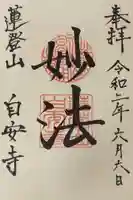 奉拝
令和二年六月六日
妙法
蓮登山
自安寺